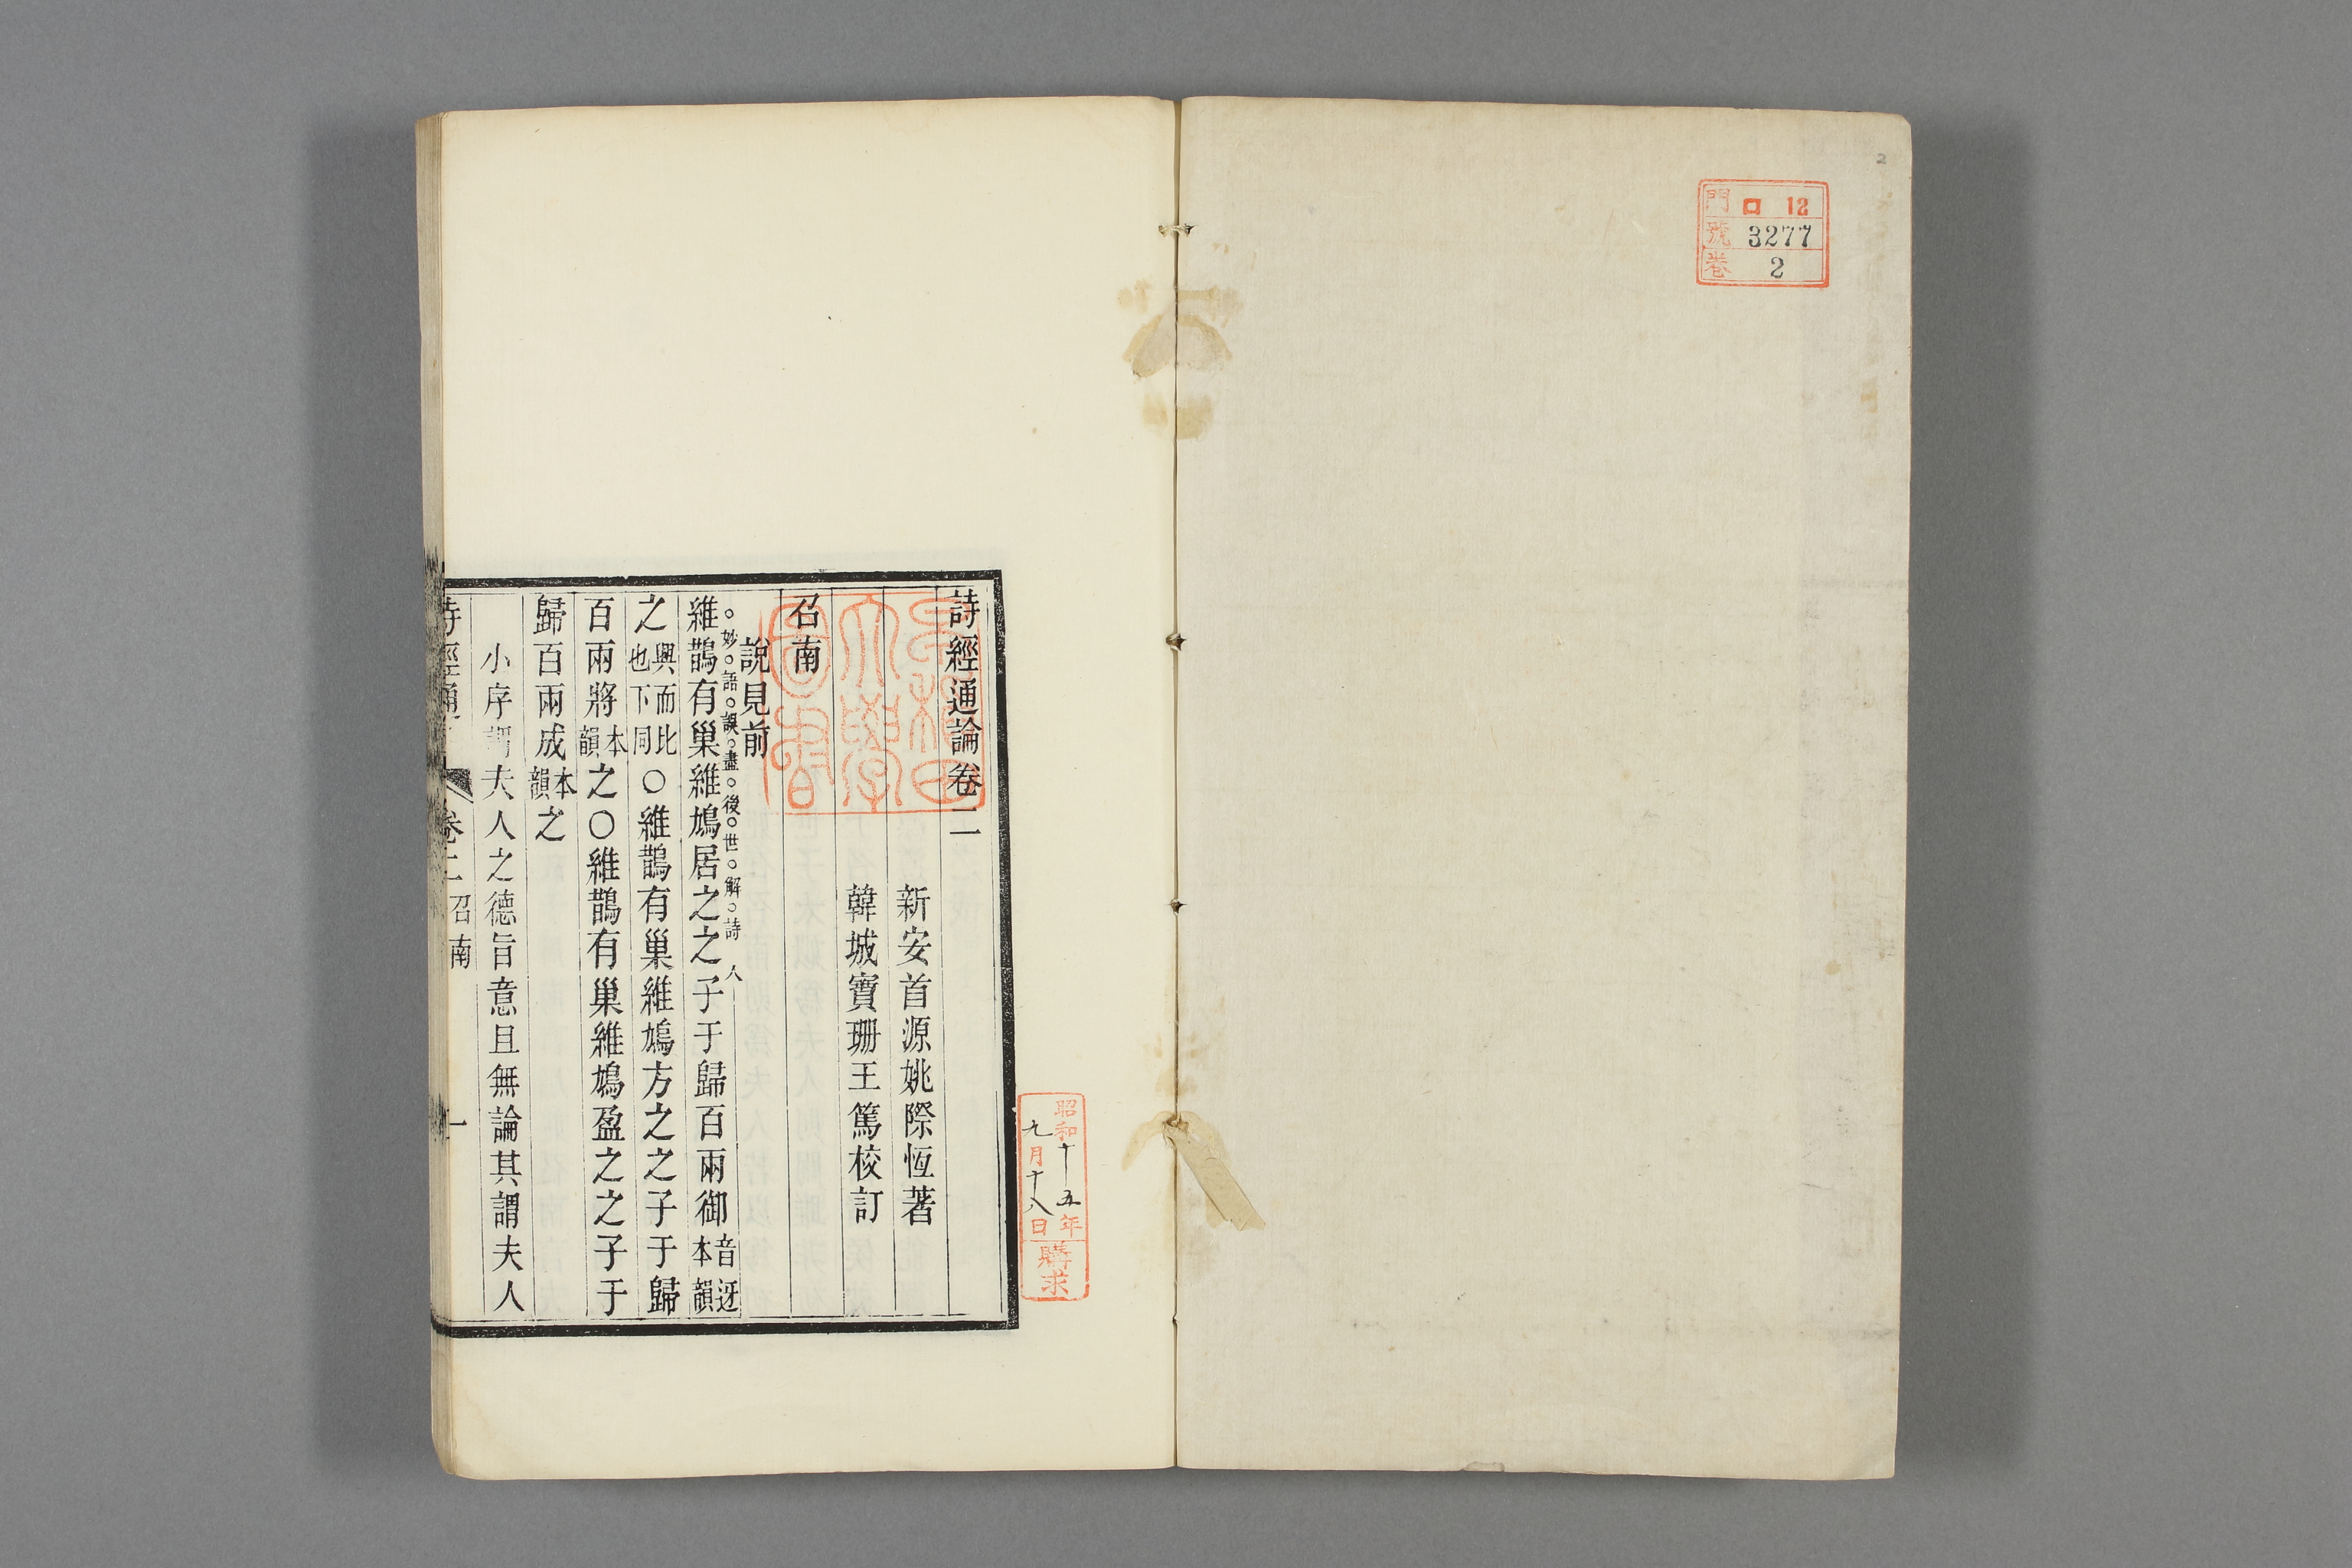 2
門 ロ 12
號 3277
卷 2
昭和十五年
九月十八日
購求
早稻田
大學
圖書
詩經通論卷二
新安首源姚際恆著
韓城寶珊王篤校訂
召南
說見前
妙語誤盡後世解詩人
維鵲有巢維鳩居之之子于歸百兩御音迓本韻
之興而比也下同〇維鵲有巢維鳩方之之子于歸
百兩將本韻之〇維鵲有巢維鳩盈之之子于
歸百兩成本韻之
小序謂夫人之德旨意且無論其謂夫人
詩經通 卷二 召南 一